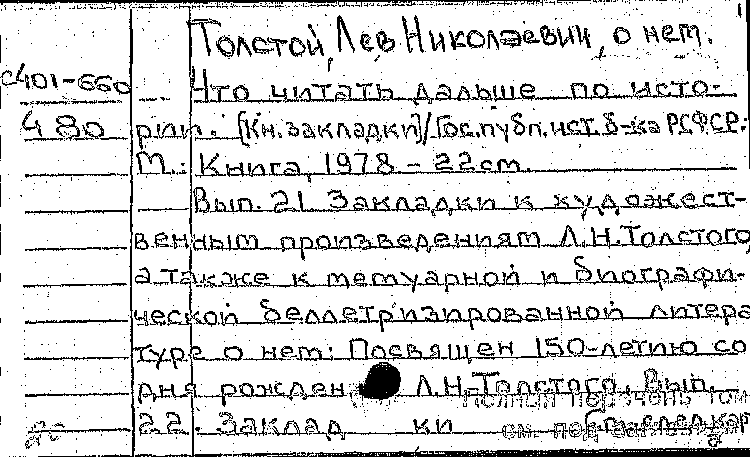 Толстой, Лев Николаевич, о нем.
с401-660 Что читать дальше по исто-
480 рии. [Кн. закладки]/Гос. публ. ист. б-ка РСФСР.
М.: Книга, 1978 - 22 см.
Вып. 21 Закладки к художест-
венным произведениям Л.Н. Толстого
а также к мемуарной и биографи-
ческой беллетризированной литера
туре о нем: Посвящен 150-летию со
дня рожден Л.Н. Толстого. Вып.
Полный перечень том
22. Заклад ки См. след. кар
см. под